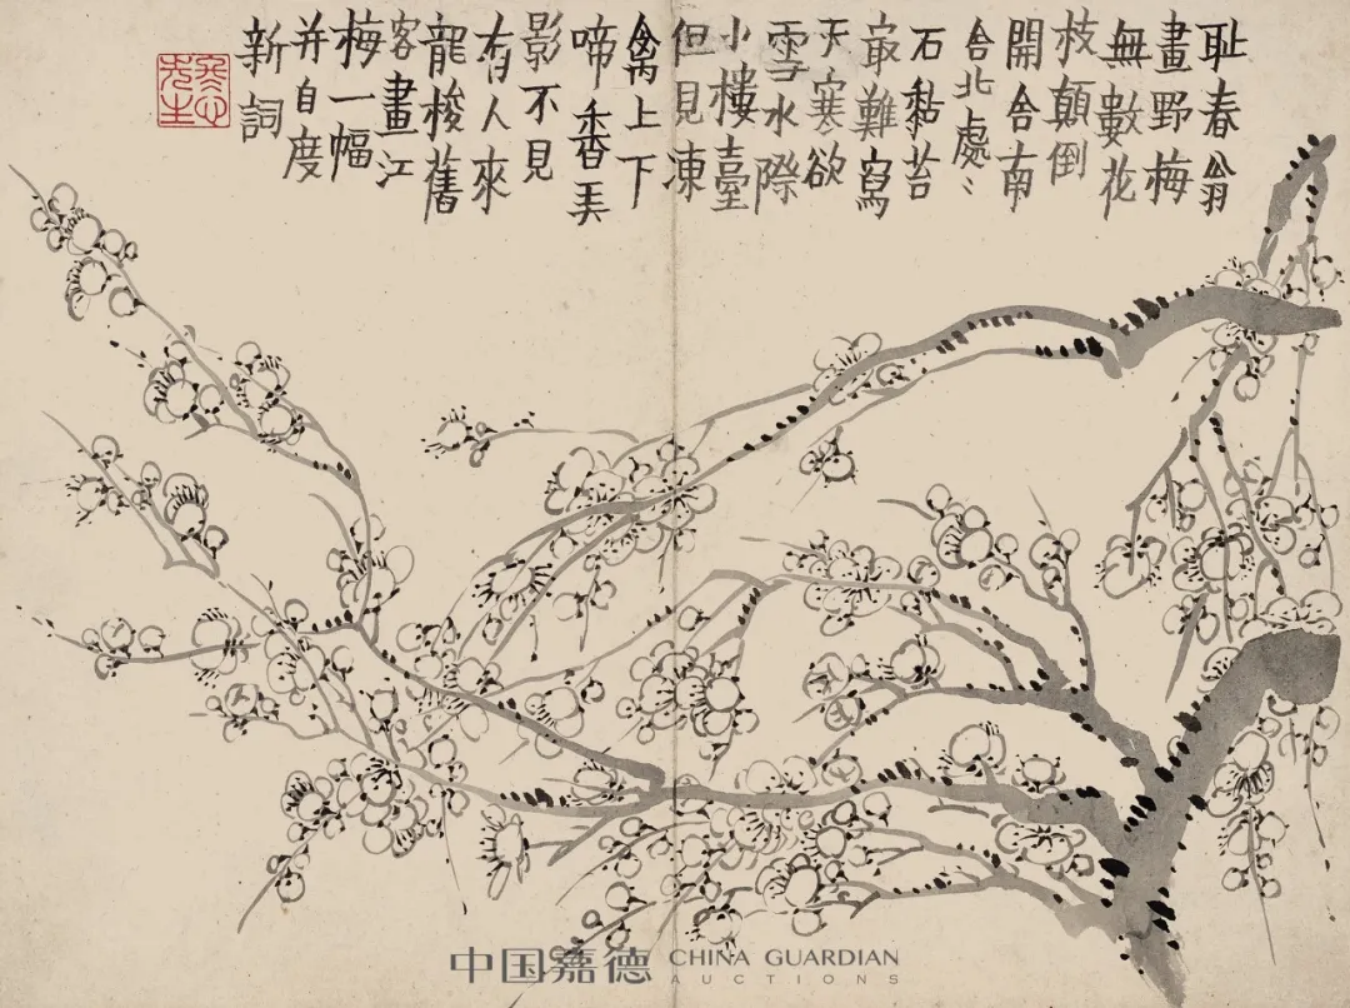 耻春翁
畫野梅
無數花
枝顛倒
開舍南
舍北處〻
石黏苔
㝡難寫
天寒欲
雪水際
小樓臺
但見凍
禽上下
啼香弄
影不見
有人來
龍梭舊
客畫江
梅一幅
并自度
新詞
冬心先生
中国嘉德 CHINA GUARDIAN
AUCTIONS